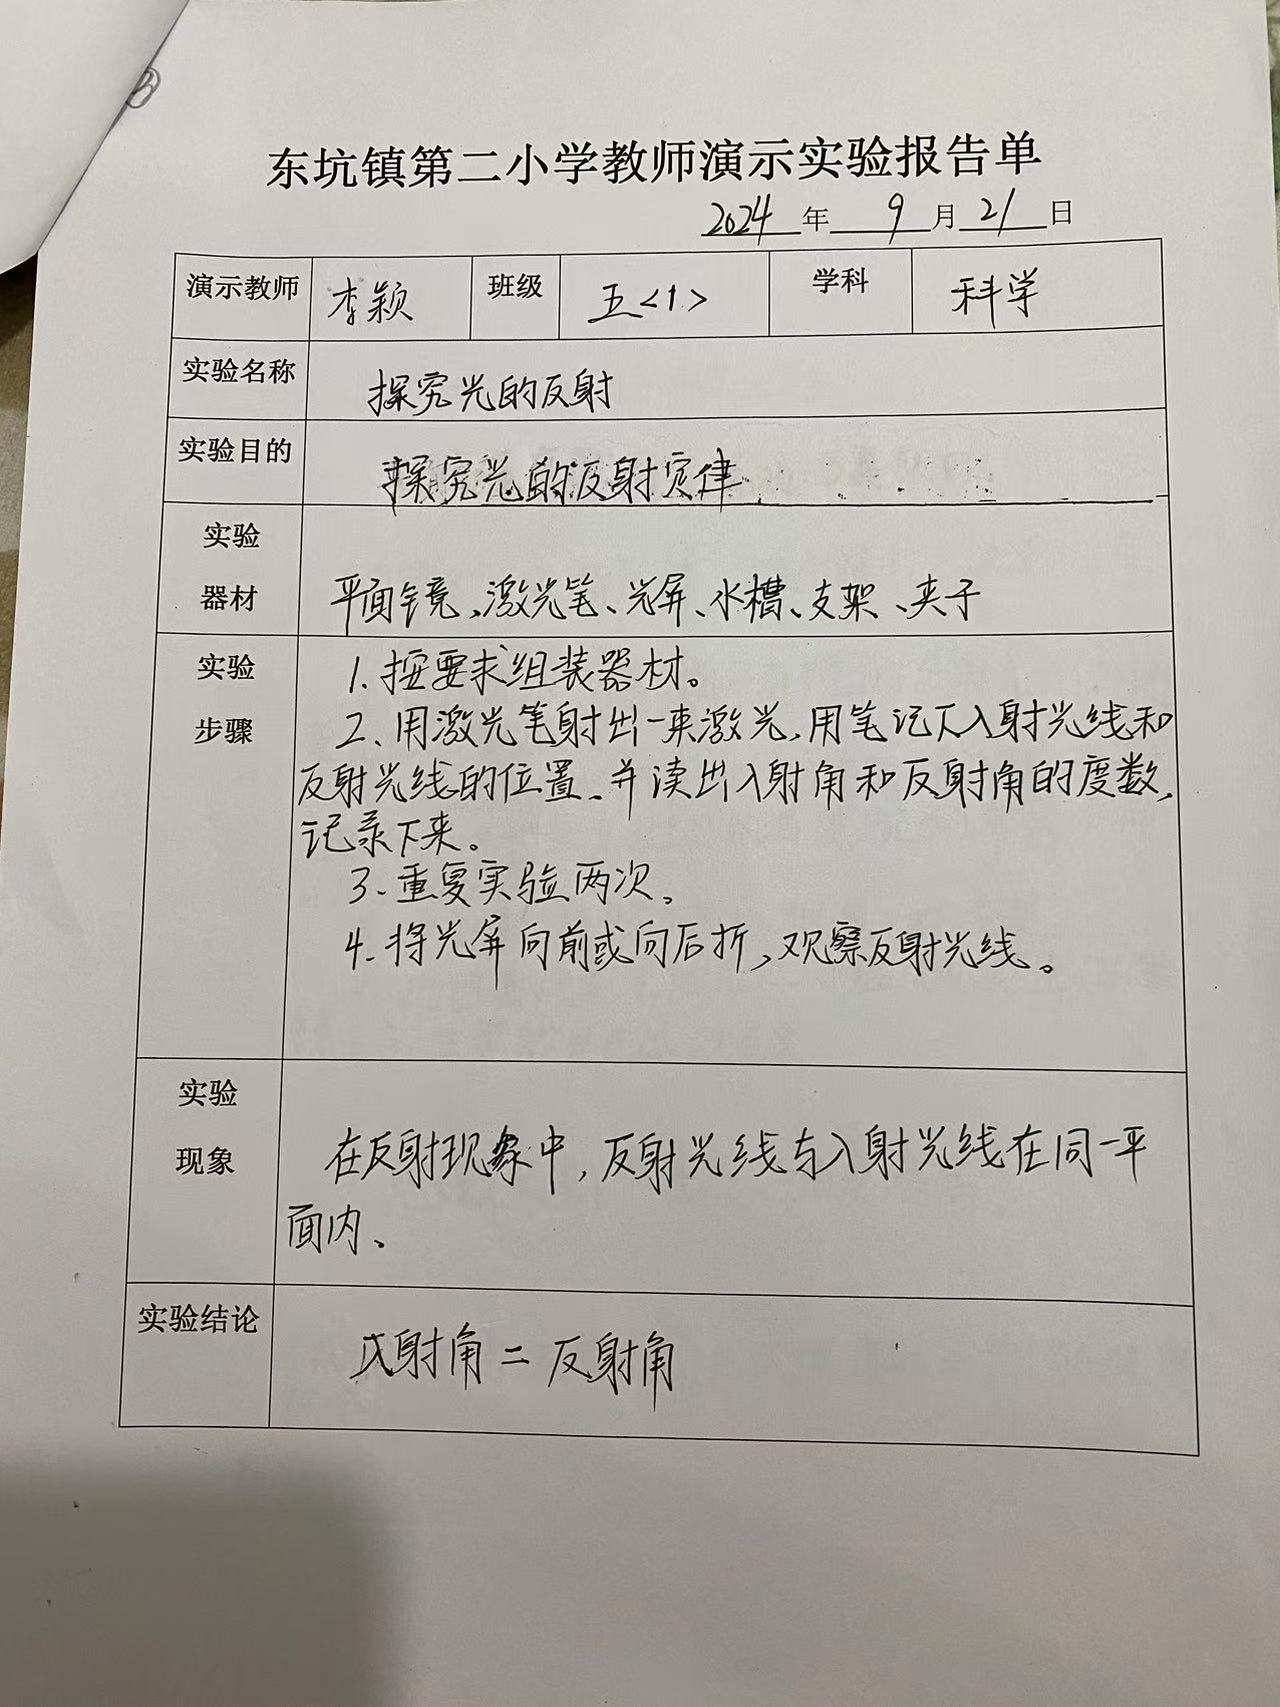 东坑镇第二小学教师演示实验报告单
2024年9月21日
演示教师 李颖 班级 五<1> 学科 科学
实验名称 探究光的反射
实验目的 探究光的反射定律
实验
器材 平面镜、激光笔、光屏、水槽、支架、夹子
实验 1.按要求组装器材。
步骤 2、用激光笔射出一束激光,用笔记下入射光线和
反射光线的位置、并读出入射角和反射角的度数,
记录下来。
3、重复实验两次。
4、将光屏向前或向后折,观察反射光线。
实验
现象 在反射现象中,反射光线与入射光线在同一平
面内、
实验结论 射角=反射角